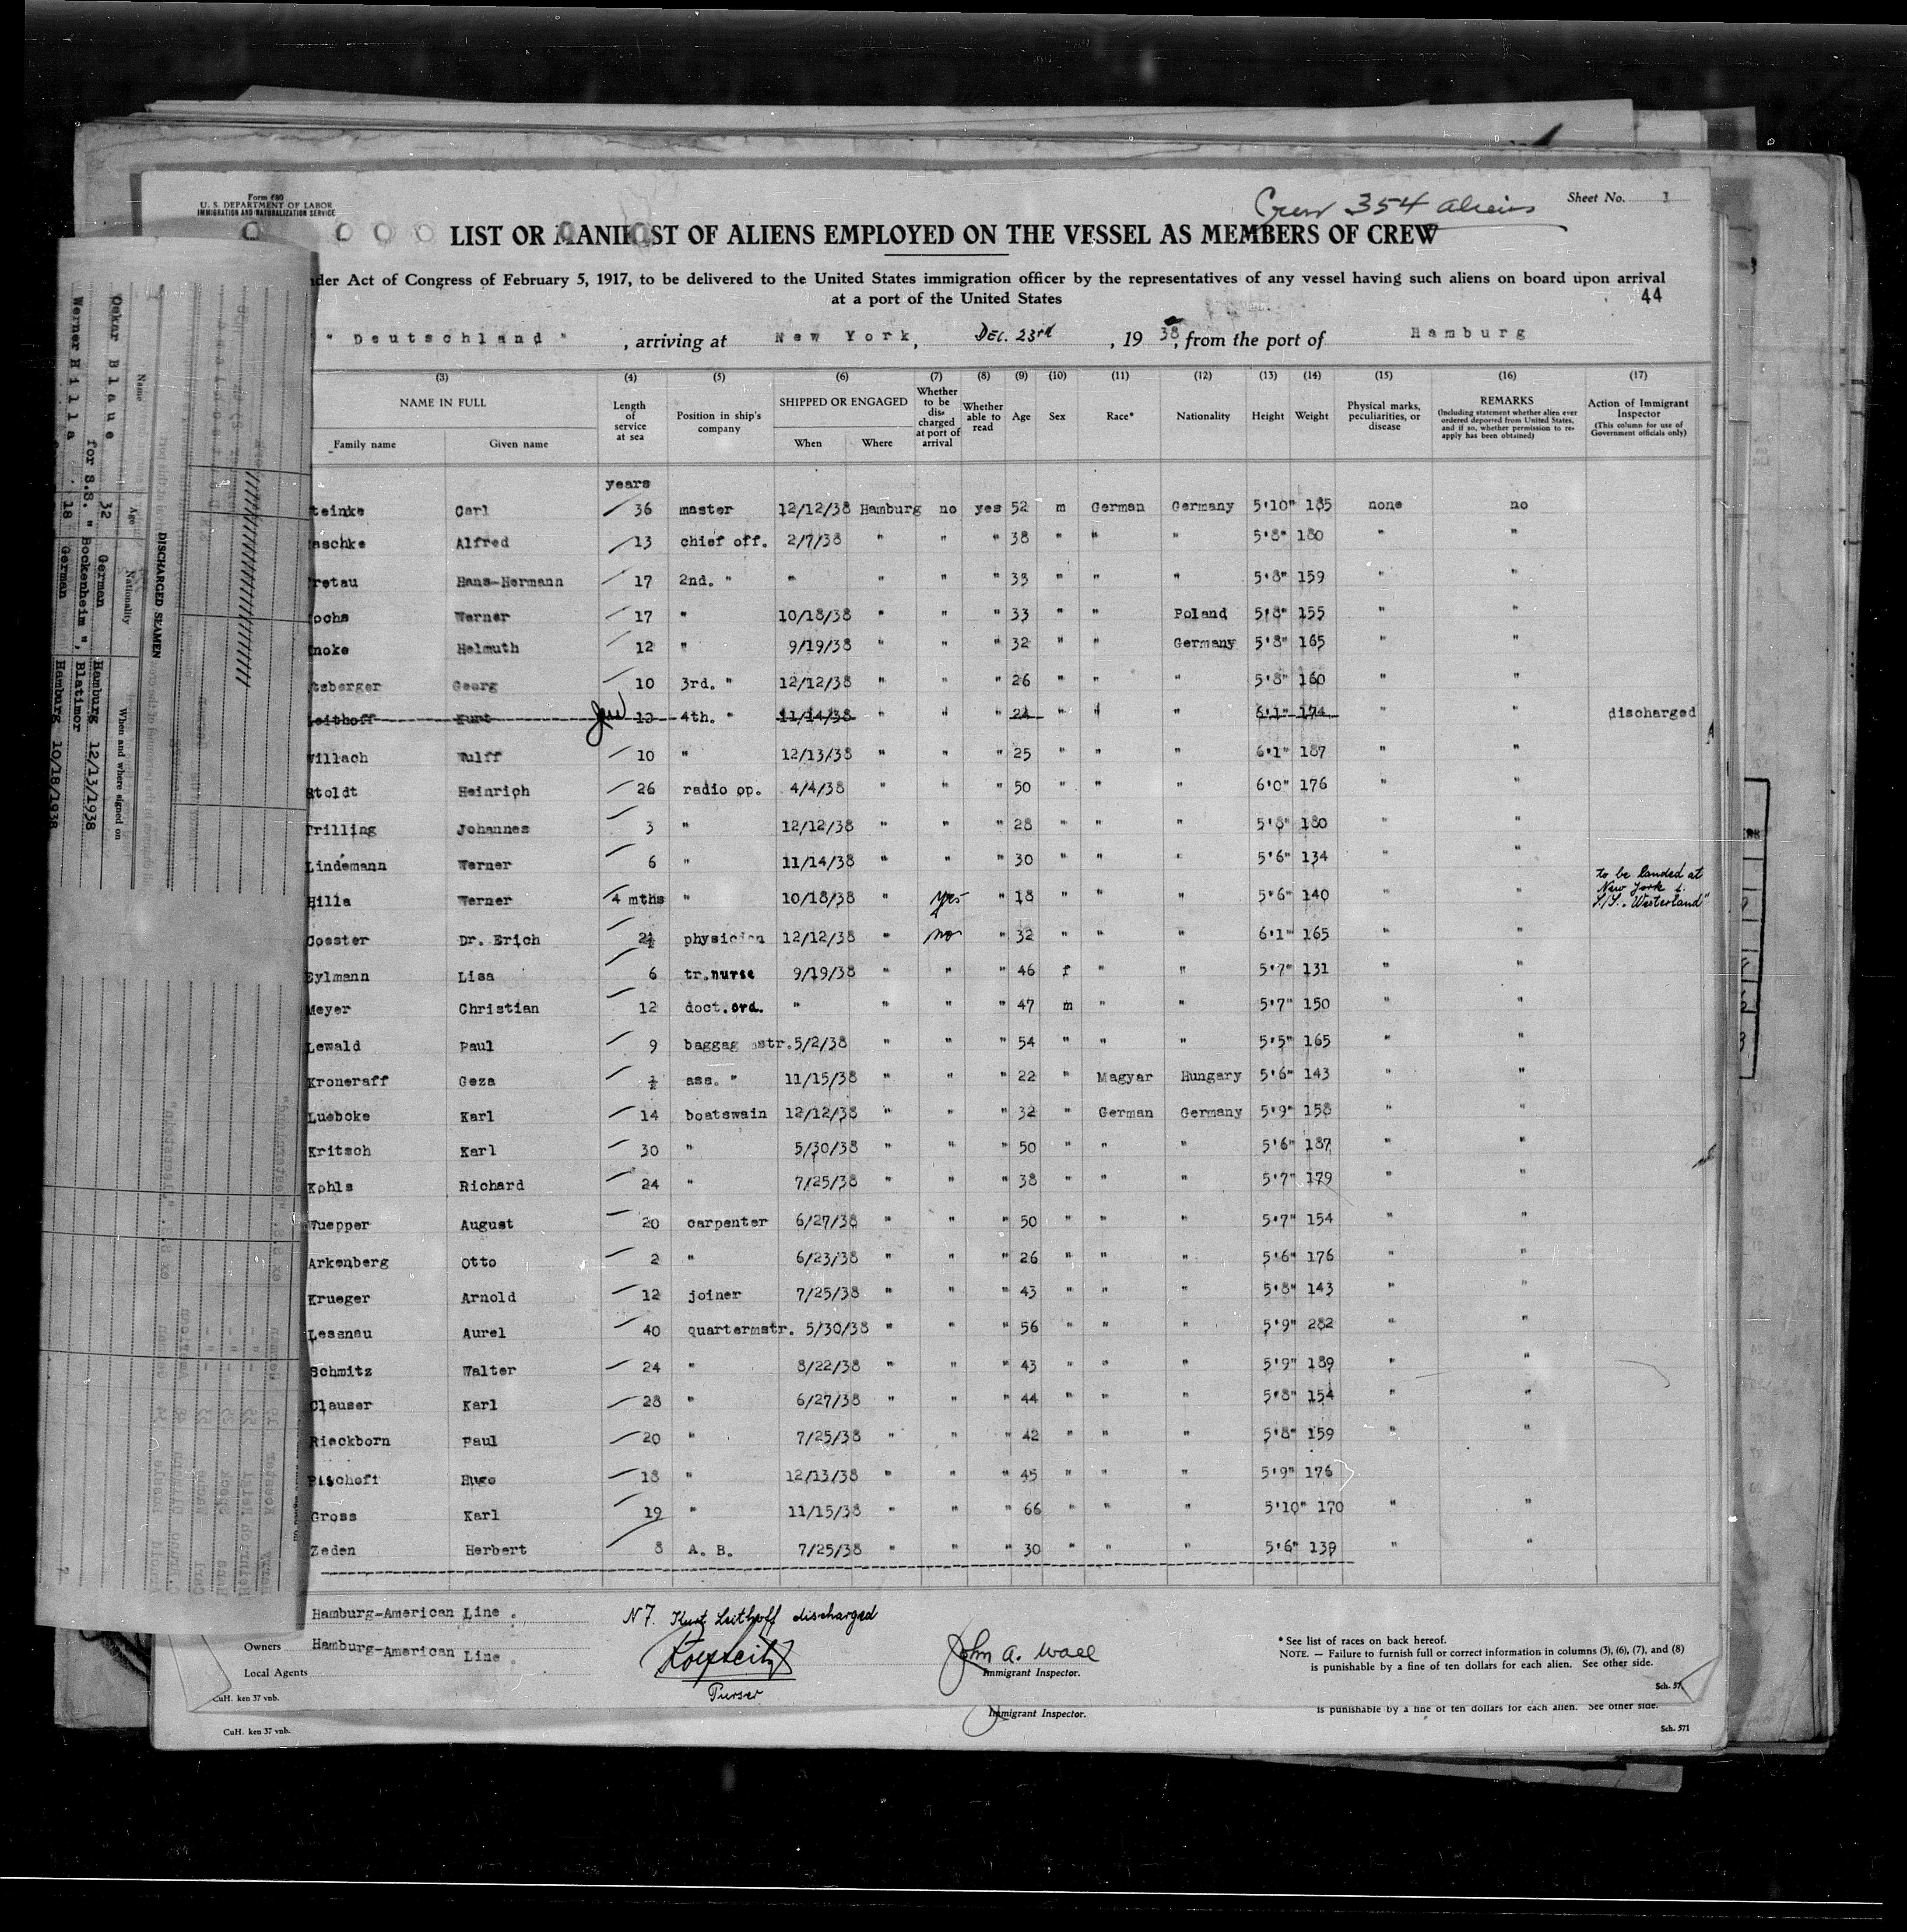 Form 680
U. S. DEPARTMENT OF LABOR
IMMIGRATION AND NATURALIZATION SERVICE
Crew 354 aliens
Sheet No. 1
LIST OR MANIFEST OF ALIENS EMPLOYED ON THE VESSEL AS MEMBERS OF CREW
nder Act of Congress of February 5, 1917, to be delivered to the United States immigration officer by the representatives of any vessel having such aliens on board upon arrival
at a port of the United States
44
" Deutschland " , arriving at New York, Dec. 23rd , 19 38, from the port of Hamburg
(3) (4) (5) (6) (7) (8) (9) (10) (11) (12) (13) (14) (15) (16) (17)
NAME IN FULL Length of service at sea Position in ship's company SHIPPED OR ENGAGED Whether to be discharged at port of arrival Whether able to read Age Sex Race* Nationality Height Weight Physical marks, peculiarities, or disease REMARKS (Including statement whether alien ever ordered deported from United States, and if so, whether permission to reapply has been obtained) Action of Immigrant Inspector (This column for use of Government officials only)
Family name Given name When Where
years
teinke Carl 36 master 12/12/38 Hamburg no yes 52 m German Germany 5'10" 185 none no
aschke Alfred 13 chief off. 2/7/38 " " " 38 " " " 5'8" 180 " "
retau Hans-Hermann 17 2nd. " " " " " 33 " " " 5'8" 159 " "
ochs Werner 17 " 10/18/38 " " " 33 " " Poland 5'8" 155 " "
noke Helmuth 12 " 9/19/38 " " " 32 " " Germany 5'8" 165 " "
tzberger Georg 10 3rd. " 12/12/38 " " " 26 " " " 5'8" 160 " "
Leithoff Kurt 13 4th. " 11/14/38 " " " 24 " " " 6'1" 174 " " discharged
Willach Wulff 10 " 12/13/38 " " " 25 " " " 6'1" 187 " "
Stoldt Heinrich 26 radio op. 4/4/38 " " " 50 " " " 6'0" 176 " "
Trilling Johannes 3 " 12/12/38 " " " 28 " " " 5'8" 180 " "
Lindemann Werner 6 " 11/14/38 " " " 30 " " " 5'6" 134 " "
Hilla Werner 4 mths " 10/18/38 " yes " 18 " " " 5'6" 140 " " to be landed at New York S/S. "Westerland"
Coester Dr. Erich 2½ physician 12/12/38 " no " 32 " " " 6'1" 165 " "
Eylmann Lisa 6 tr.nurse 9/19/38 " " " 46 f " " 5'7" 131 " "
Meyer Christian 12 doct.ord. " " " " 47 m " " 5'7" 150 " "
Lewald Paul 9 baggag str. 5/2/38 " " " 54 " " " 5'5" 165 " "
Kroneraff Geza ½ ass. " 11/15/38 " " " 22 " Magyar Hungary 5'6" 143 " "
Luebcke Karl 14 boatswain 12/12/38 " " " 32 " German Germany 5'9" 158 " "
Kritsch Karl 30 " 5/30/38 " " " 50 " " " 5'6" 187 " "
Kohls Richard 24 " 7/25/38 " " " 38 " " " 5'7" 179 " "
Wuepper August 20 carpenter 6/27/38 " " " 50 " " " 5'7" 154 " "
Arkenberg Otto 2 " 6/23/38 " " " 26 " " " 5'6" 176 " "
Krueger Arnold 12 joiner 7/25/38 " " " 43 " " " 5'8" 143 " "
Lessnau Aurel 40 quartermstr. 5/30/38 " " " 56 " " " 5'9" 282 " "
Schmitz Walter 24 " 8/22/38 " " " 43 " " " 5'9" 189 " "
Clauser Karl 28 " 6/27/38 " " " 44 " " " 5'8" 154 " "
Rieckborn Paul 20 " 7/25/38 " " " 42 " " " 5'8" 159 " "
Bischoff Hugo 18 " 12/13/38 " " " 45 " " " 5'9" 176 " "
Gross Karl 19 " 11/15/38 " " " 66 " " " 5'10" 170 " "
Zeden Herbert 8 A. B. 7/25/38 " " " 30 " " " 5'6" 139 " "
Hamburg-American Line .
Owners Hamburg-American Line .
Local Agents
N 7. Kurt Leithoff discharged
Purser
John A. Wall
Immigrant Inspector.
* See list of races on back hereof.
NOTE. — Failure to furnish full or correct information in columns (3), (6), (7), and (8)
is punishable by a fine of ten dollars for each alien. See other side.
Sch. 57
CuH. ken 37 vnb.
Immigrant Inspector.
is punishable by a fine of ten dollars for each alien. See other side.
CuH. ken 37 vnb.
Sch. 571
DISCHARGED SEAMEN
Name Age Nationality When and where signed on
Oskar Blaue 32 German Hamburg 12/13/1938
for S.S. " Bockenheim ", Blatimor
Werner Hilla 18 German Hamburg 10/18/1938